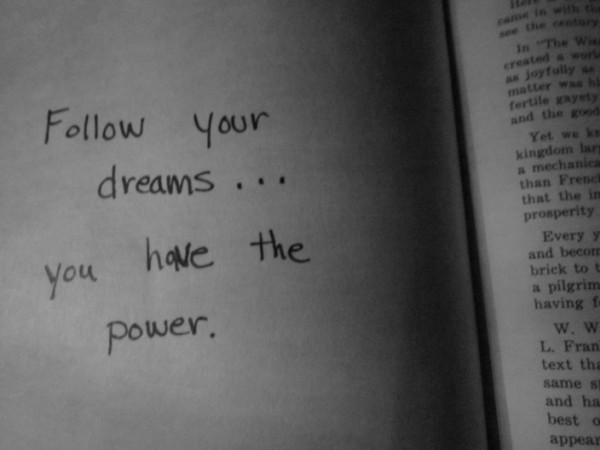 Follow your
dreams...
you have the
power.
came in with the
see the century
In "The
created a
as joyfully as
matter was
fertile gayety
and the good
Yet we
kingdom
a mechanica
than French
that the
prosperity
Every y
and becom
brick to t
a pilgrim
having f
W. W
L. Fran
text tha
same s
and ha
best o
appear